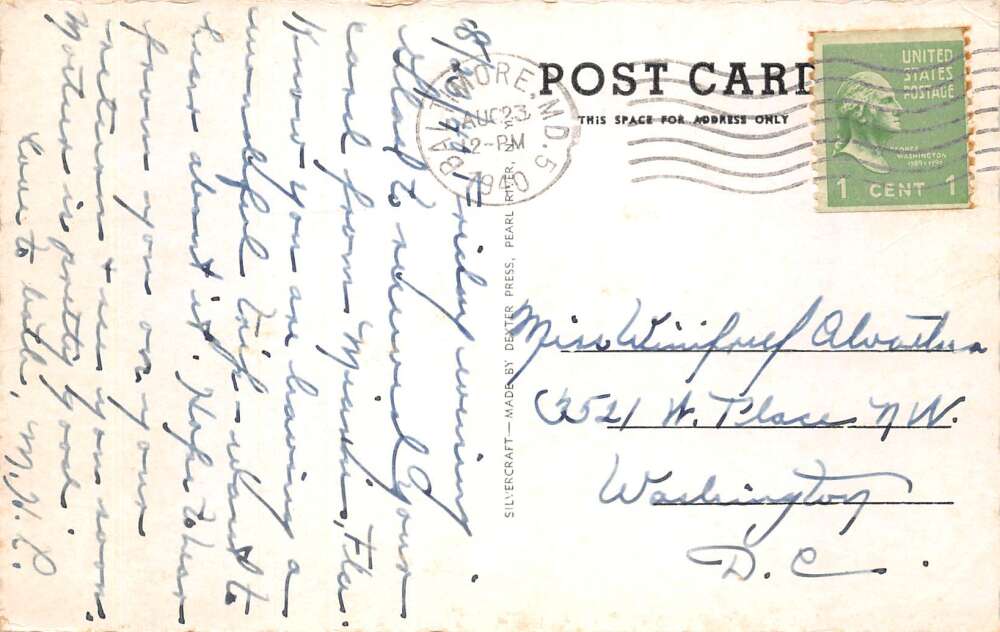 POST CARD
THIS SPACE FOR ADDRESS ONLY
BALTIMORE, MD. 5
AUG 23
12-PM
1940
UNITED
STATES
POSTAGE
GEORGE
WASHINGTON
1789-1797
1 CENT 1
SILVERCRAFT—MADE BY DEXTER PRESS, PEARL RIVER, N.Y.
Friday evening
Glad to receive your
card from Miami, Fla.
Know you are having a
wonderful trip - want to
hear about it. Hope to hear
from you on your
return & see you soon.
Mother is pretty good.
Love to both, M.H.L.
Miss Winifred
3521 W. Place N.W.
Washington
D.C.